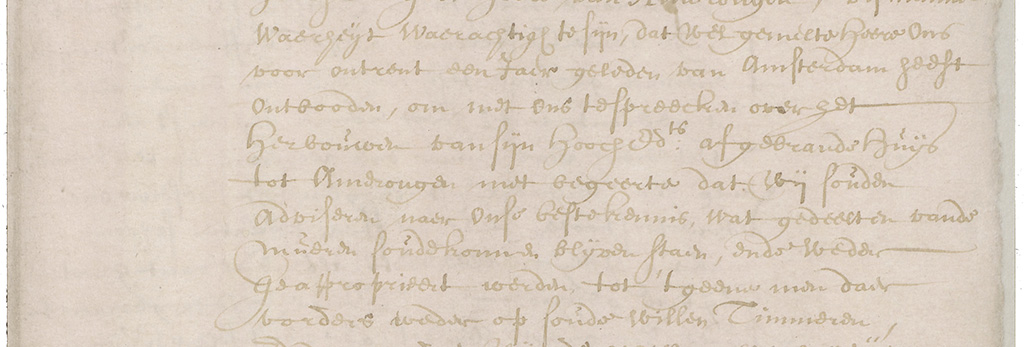 Waerheyt Waerachtigh te sijn, dat wel gemelte Heere Ons
voor ontrent een Jaer geleden van Amsterdam heeft
Ontbooden, om met ons te spreecken over het
Herbouwen van sijn Hooch Ed:ts afgebrande Huijs
tot Amerongen met begeerte dat Wij souden
Adviseren naer Onse beste kennis, wat gedeelten vande
mueren soude konnen blijven staen, ende weder
Geapproprieert werden, tot 't geene men daer
vorders weder op soude willen Timmeren,